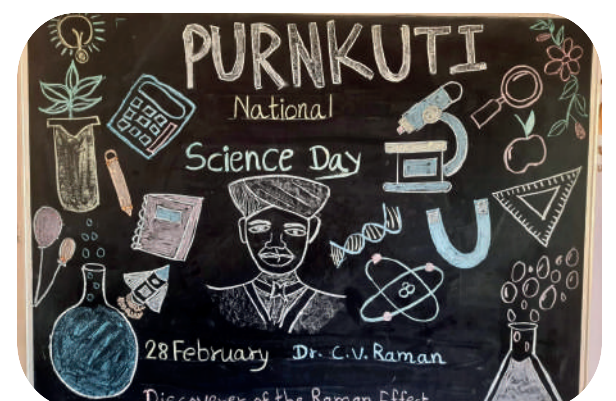 PURNKUTI
National
Science Day
28 February Dr. C.V. Raman
Discoverer of the Raman Effect